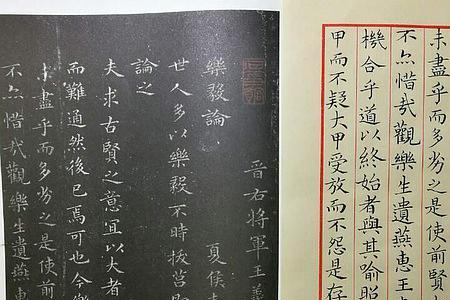 未盡乎而多劣之是使前賢
不亦惜哉觀樂生遺燕惠王
機合乎道以終始者與其喻昭
甲而不疑大甲受放而不怨是存
晉右將軍王羲
樂毅論 夏侯
世人多以樂毅不時拔莒即
論之
夫求古賢之意宜以大者
而難通然後已焉可也今樂
未盡乎而多劣之是使前
不亦惜哉觀樂生遺燕惠